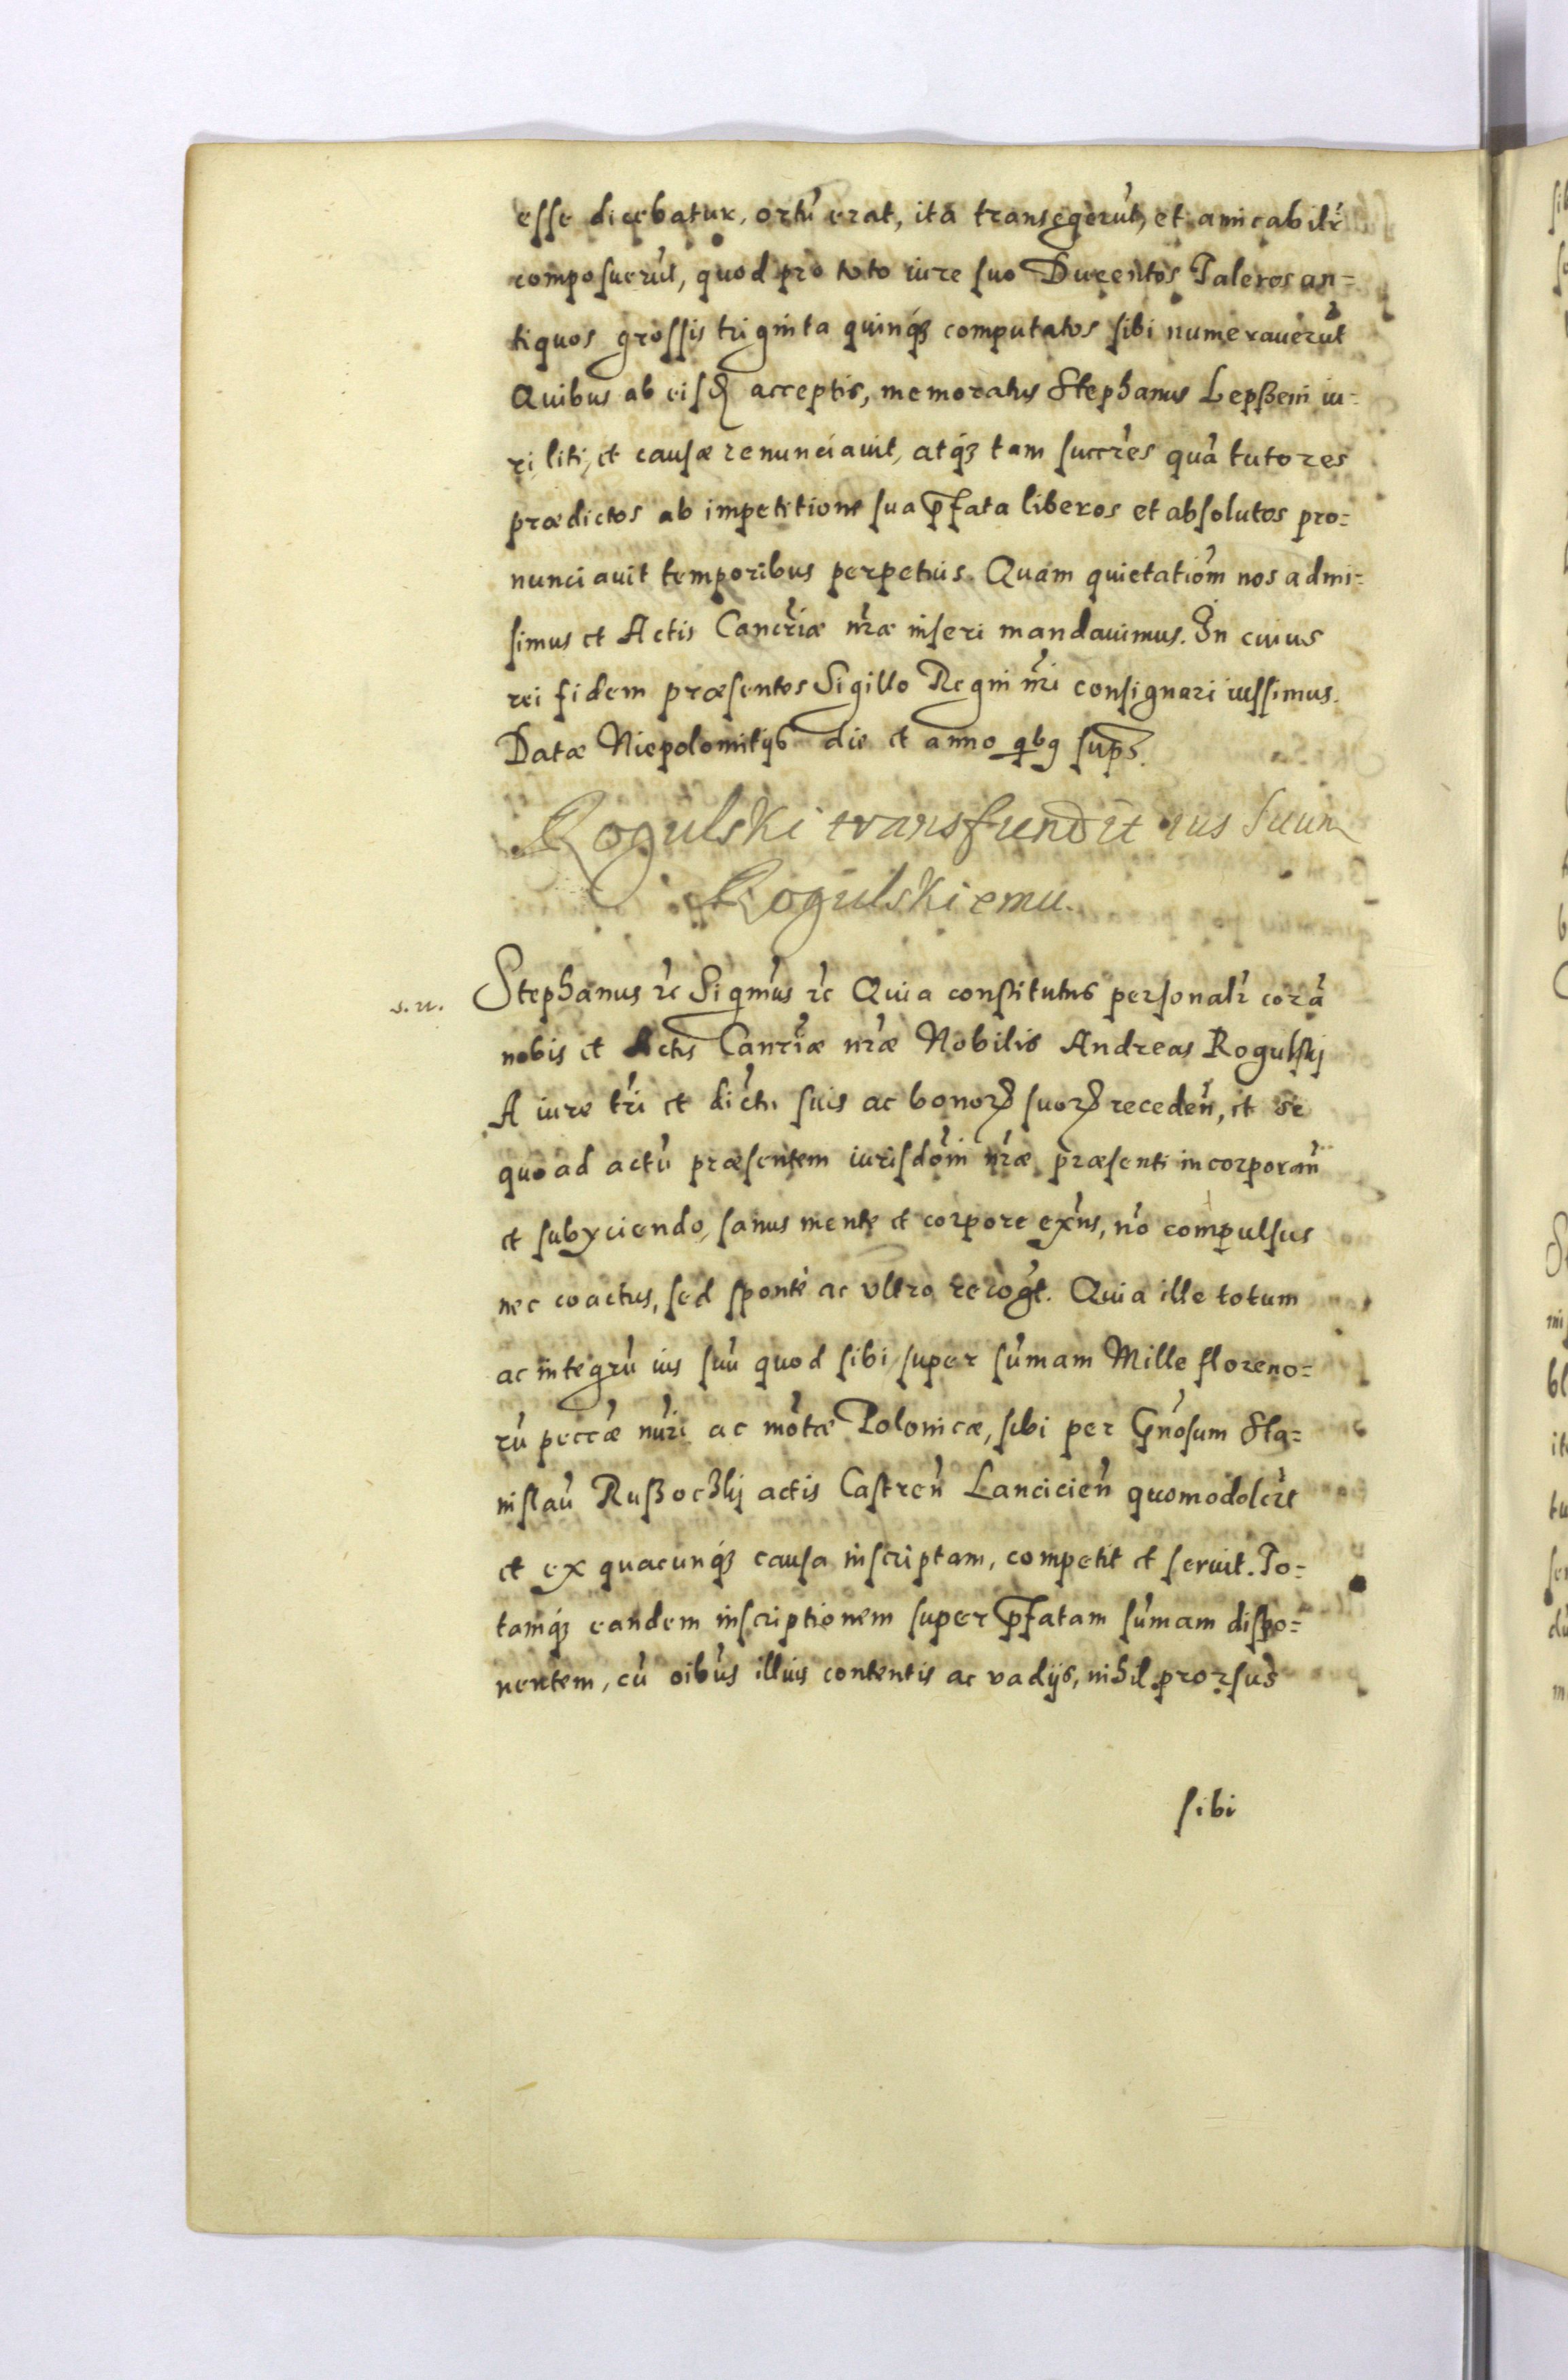 esse dicebatur, ortũ erat, ita transegerũt, et amicabilr̃
composuerũt, quod pro toto iure suo Ducentos Taleros an=
tiquos grossis triginta quinq́ʒ computatos sibi numerauerũt
Quibus ab eisd acceptis, memoratus Stephanus Lepßeni iu=
ri liti, et causæ renunciauit, atq́ʒ tam succr̃es quã tutores
prædictos ab impetitione sua p̃fata liberos et absolutos pro=
nunciauit temporibus perpetuis. Quam quietatiõm nos admi=
simus et Actis Cancr̃iæ nr̃æ inseri mandauimus. In cuius
rei fidem præsentes Sigillo Regni nr̃i consignari iussimus.
Datæ Niepolomitijs die et anno qbꝯ sup̃s.
Rogulski transfundit ius suum
Rogulskiemu.
s. n. Stephanus ꝛc Sigm̃us ꝛc Quia constitutus personalr̃ corã
nobis et Actis Cancr̃iæ nr̃æ Nobilis Andreas Rogulskj
A iure tr̃i et dictu suis ac bonorꝝ suorꝝ recedeñ, et se
quo ad actũ præsentem iurisdõni nr̃æ præsenti incorporañ
et subyciendo, sanus mente et corpore exñs, nõ compulsus
nec coactus, sed sponte ac vltro recog̃t. Quia ille totum
ac integrũ ius suũ quod sibi super sum̃am Mille floreno=
rũ pecc̃æ nũri ac mõtæ Polonicæ, sibi per Gñosum Sta=
nislaũ Rußoczkj actis Castreñ Lancicieñ quomodolr̃t
et ex quacunq́ʒ causa inscriptam, competit et seruit. To=
tamq́ʒ eandem inscriptionem super p̃fatam sum̃am dispo=
nentem, cũ oibũs illius contentis ac vadijs, nihil prorsus
sibi